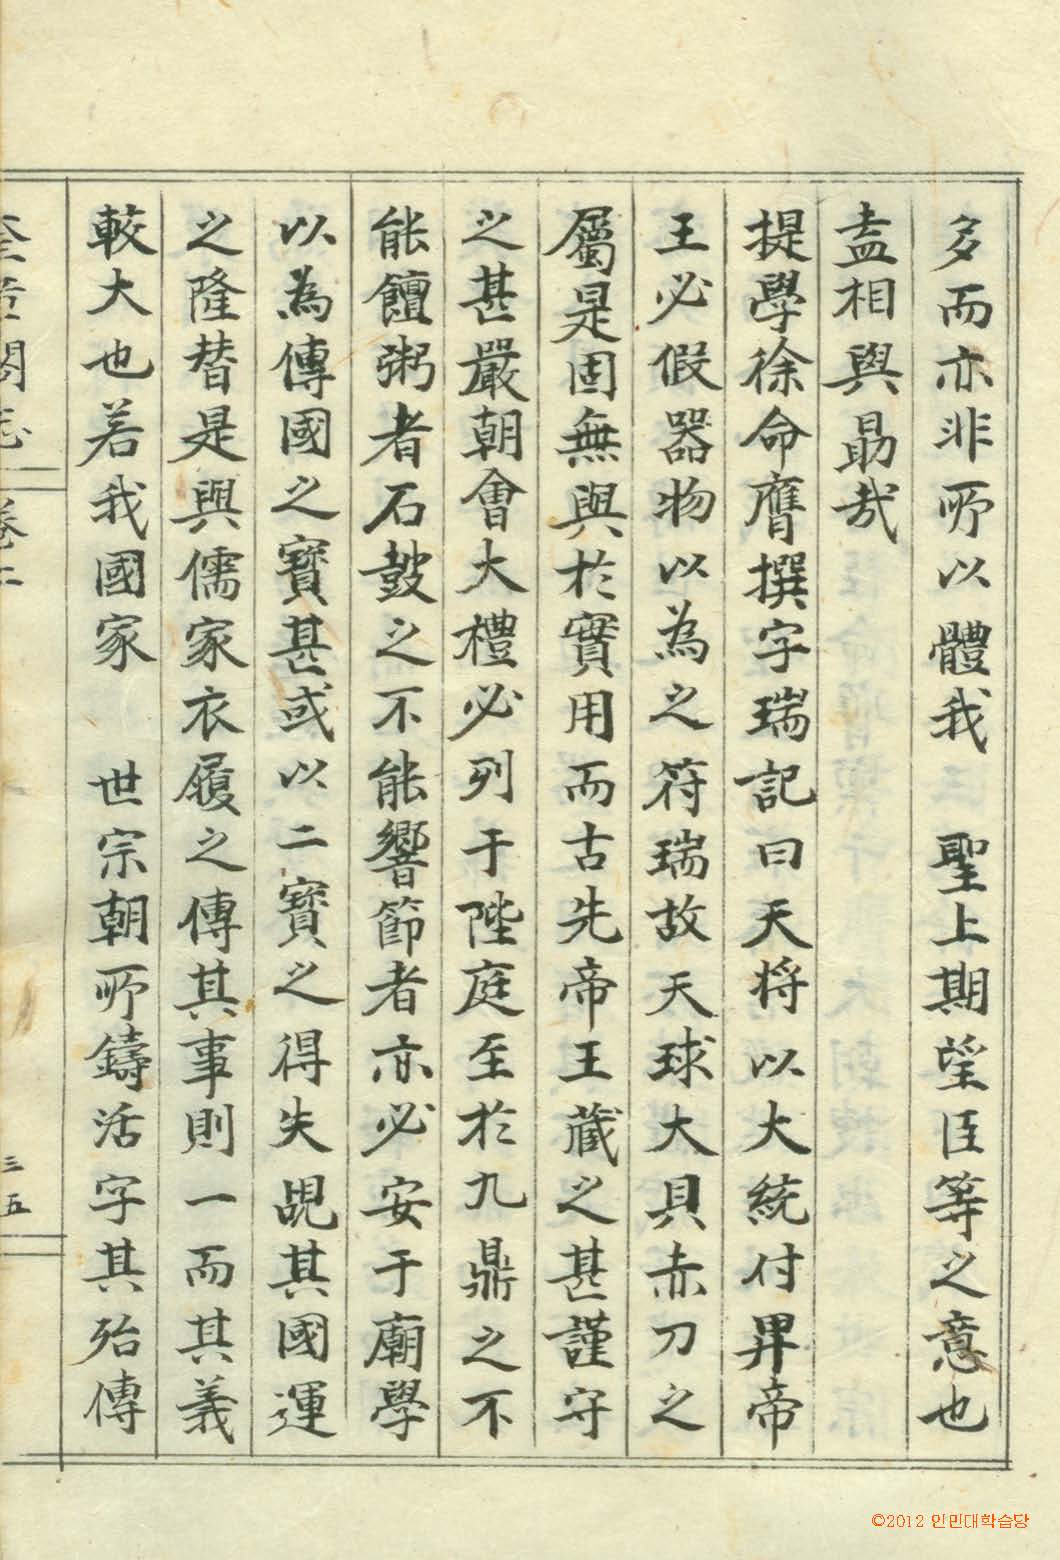 多而亦非所以體我 聖上期望臣等之意也
盍相與勗哉
提學徐命膺撰字瑞記曰天將以大統付畀帝
王必假器物以為之符瑞故天球大貝赤刀之
屬是固無與於實用而古先帝王藏之甚謹守
之甚嚴朝會大禮必列于陛庭至於九鼎之不
能饘粥者石鼓之不能響節者亦必安于廟學
以為傳國之寶甚或以二寶之得失覘其國運
之隆替是與儒家衣履之傳其事則一而其義
較大也若我國家 世宗朝所鑄活字其殆傳
奎章閣志 卷二
三五
©2012 인민대학습당